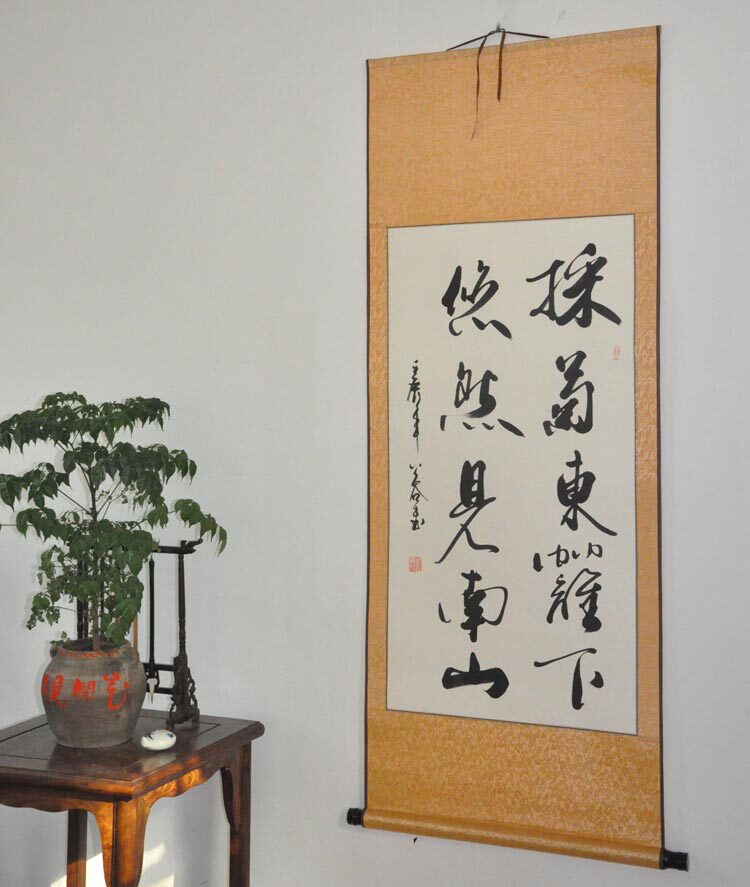 採菊東籬下
悠然見南山
壬辰年
花開見